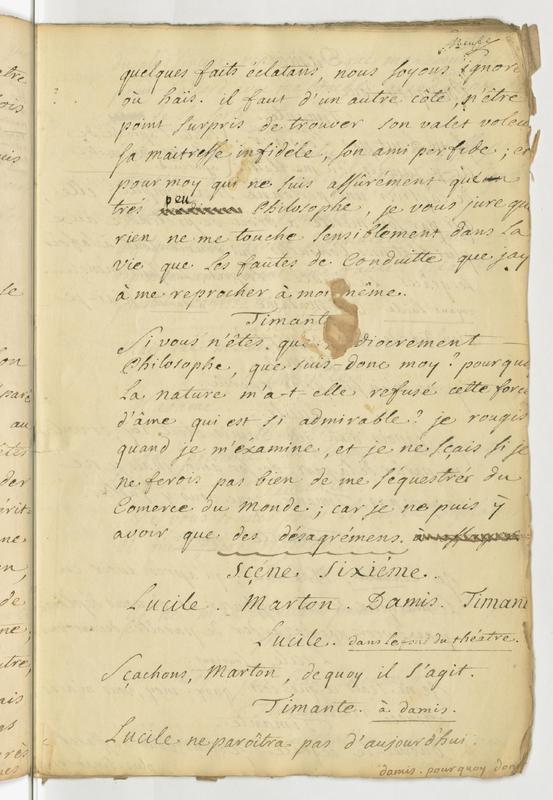 quelques faits éclatans, nous soyons ignoré
où haïs. il faut d'un autre côté, n'être
point surpris de trouver son valet voleu
sa maitresse infidéle, son ami perfide; et
pour moy qui ne suis assûrément que
trés peu Philosophe, je vous jure que
rien ne me touche sensiblement dans la
vie que les fautes de Conduitte que j'ay
à me reprocher à moi même.
Timante
Si vous n'êtes que médiocrement
Philosophe, que suis-donc moy? pourquoy
la nature m'a-t elle refusé cette force
d'âme qui est si admirable? je rougis
quand je m'éxamine, et je ne sçais si je
ne ferois pas bien de me séquestrer du
Comerce du Monde; car je ne puis y
avoir que des désagrémens.
Scéne Sixiéme.
Lucile. Marton. Damis. Timan
Lucile. dans le fond du théatre.
Sçachons, Marton, de quoy il s'agit.
Timante. à damis.
Lucile ne paroîtra pas d'aujourd'hui.
damis. pourquoy donc